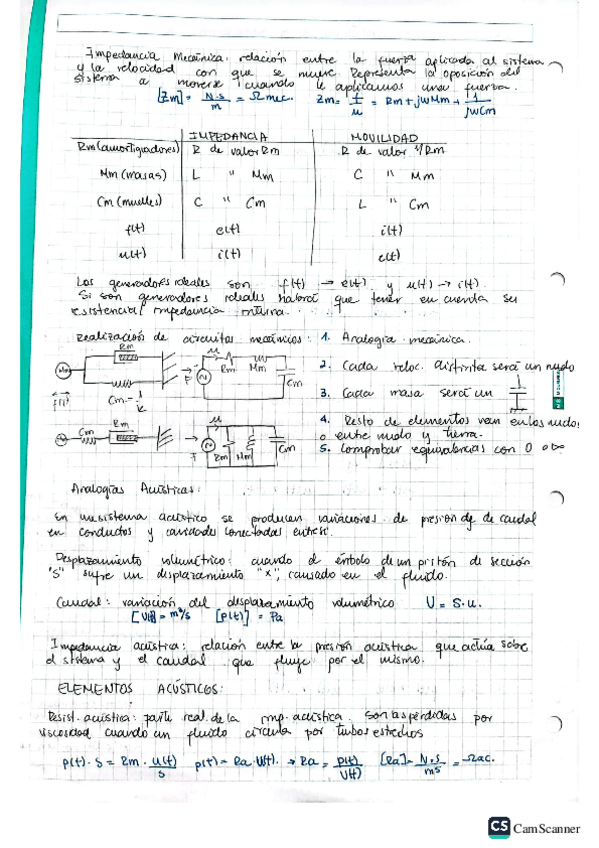 Impedancia mecánica: relación entre la fuerza aplicada al sistema
y la velocidad con que se mueve. Representa la oposición del
sistema a moverse cuando le aplicamos una fuerza.
[Zm] = N·s/m = Ωmec. Zm = f/u = Rm + jωMm + 1/jωCm
IMPEDANCIA MOVILIDAD
Rm (amortiguadores) R de valor Rm R de valor 1/Rm
Mm (masas) L " Mm C " Mm
Cm (muelles) C " Cm L " Cm
f(t) e(t) i(t)
u(t) i(t) e(t)
Los generadores ideales son f(t) → e(t) y u(t) → i(t).
Si son generadores reales habrá que tener en cuenta su
resistencia/impedancia interna.
Realización de circuitos mecánicos: 1. Analogía mecánica.
2. Cada veloc. distinta será un nudo
3. Cada masa será un
4. Resto de elementos van en los nudos
o entre nudo y tierra.
5. Comprobar equivalencias con 0 o ∞
Rm
Mm
f(t)
Cm = 1/k
F
u
Rm
Mm
Cm
Cm
Rm
F
u
Rm
Mm
Cm
Analogías Acústicas:
En un sistema acústico se producen variaciones de presión y de caudal
en conductos y cavidades conectadas entre sí.
Desplazamiento volumétrico: cuando el émbolo de un pistón de sección
"S" sufre un desplazamiento "x", causado en el fluido.
Caudal: variación del desplazamiento volumétrico U = S·u.
[U(t)] = m³/s [p(t)] = Pa
Impedancia acústica: relación entre la presión acústica que actúa sobre
el sistema y el caudal que fluye por el mismo.
ELEMENTOS ACÚSTICOS:
Resist. acústica: parte real de la imp. acústica. Son las pérdidas por
viscosidad cuando un fluido circula por tubos estrechos
p(t)·S = Rm · U(t)/S p(t) = Ra·U(t). → Ra = p(t)/U(t) [Ra] = N·s/m⁵ = Ωac.
CS CamScanner